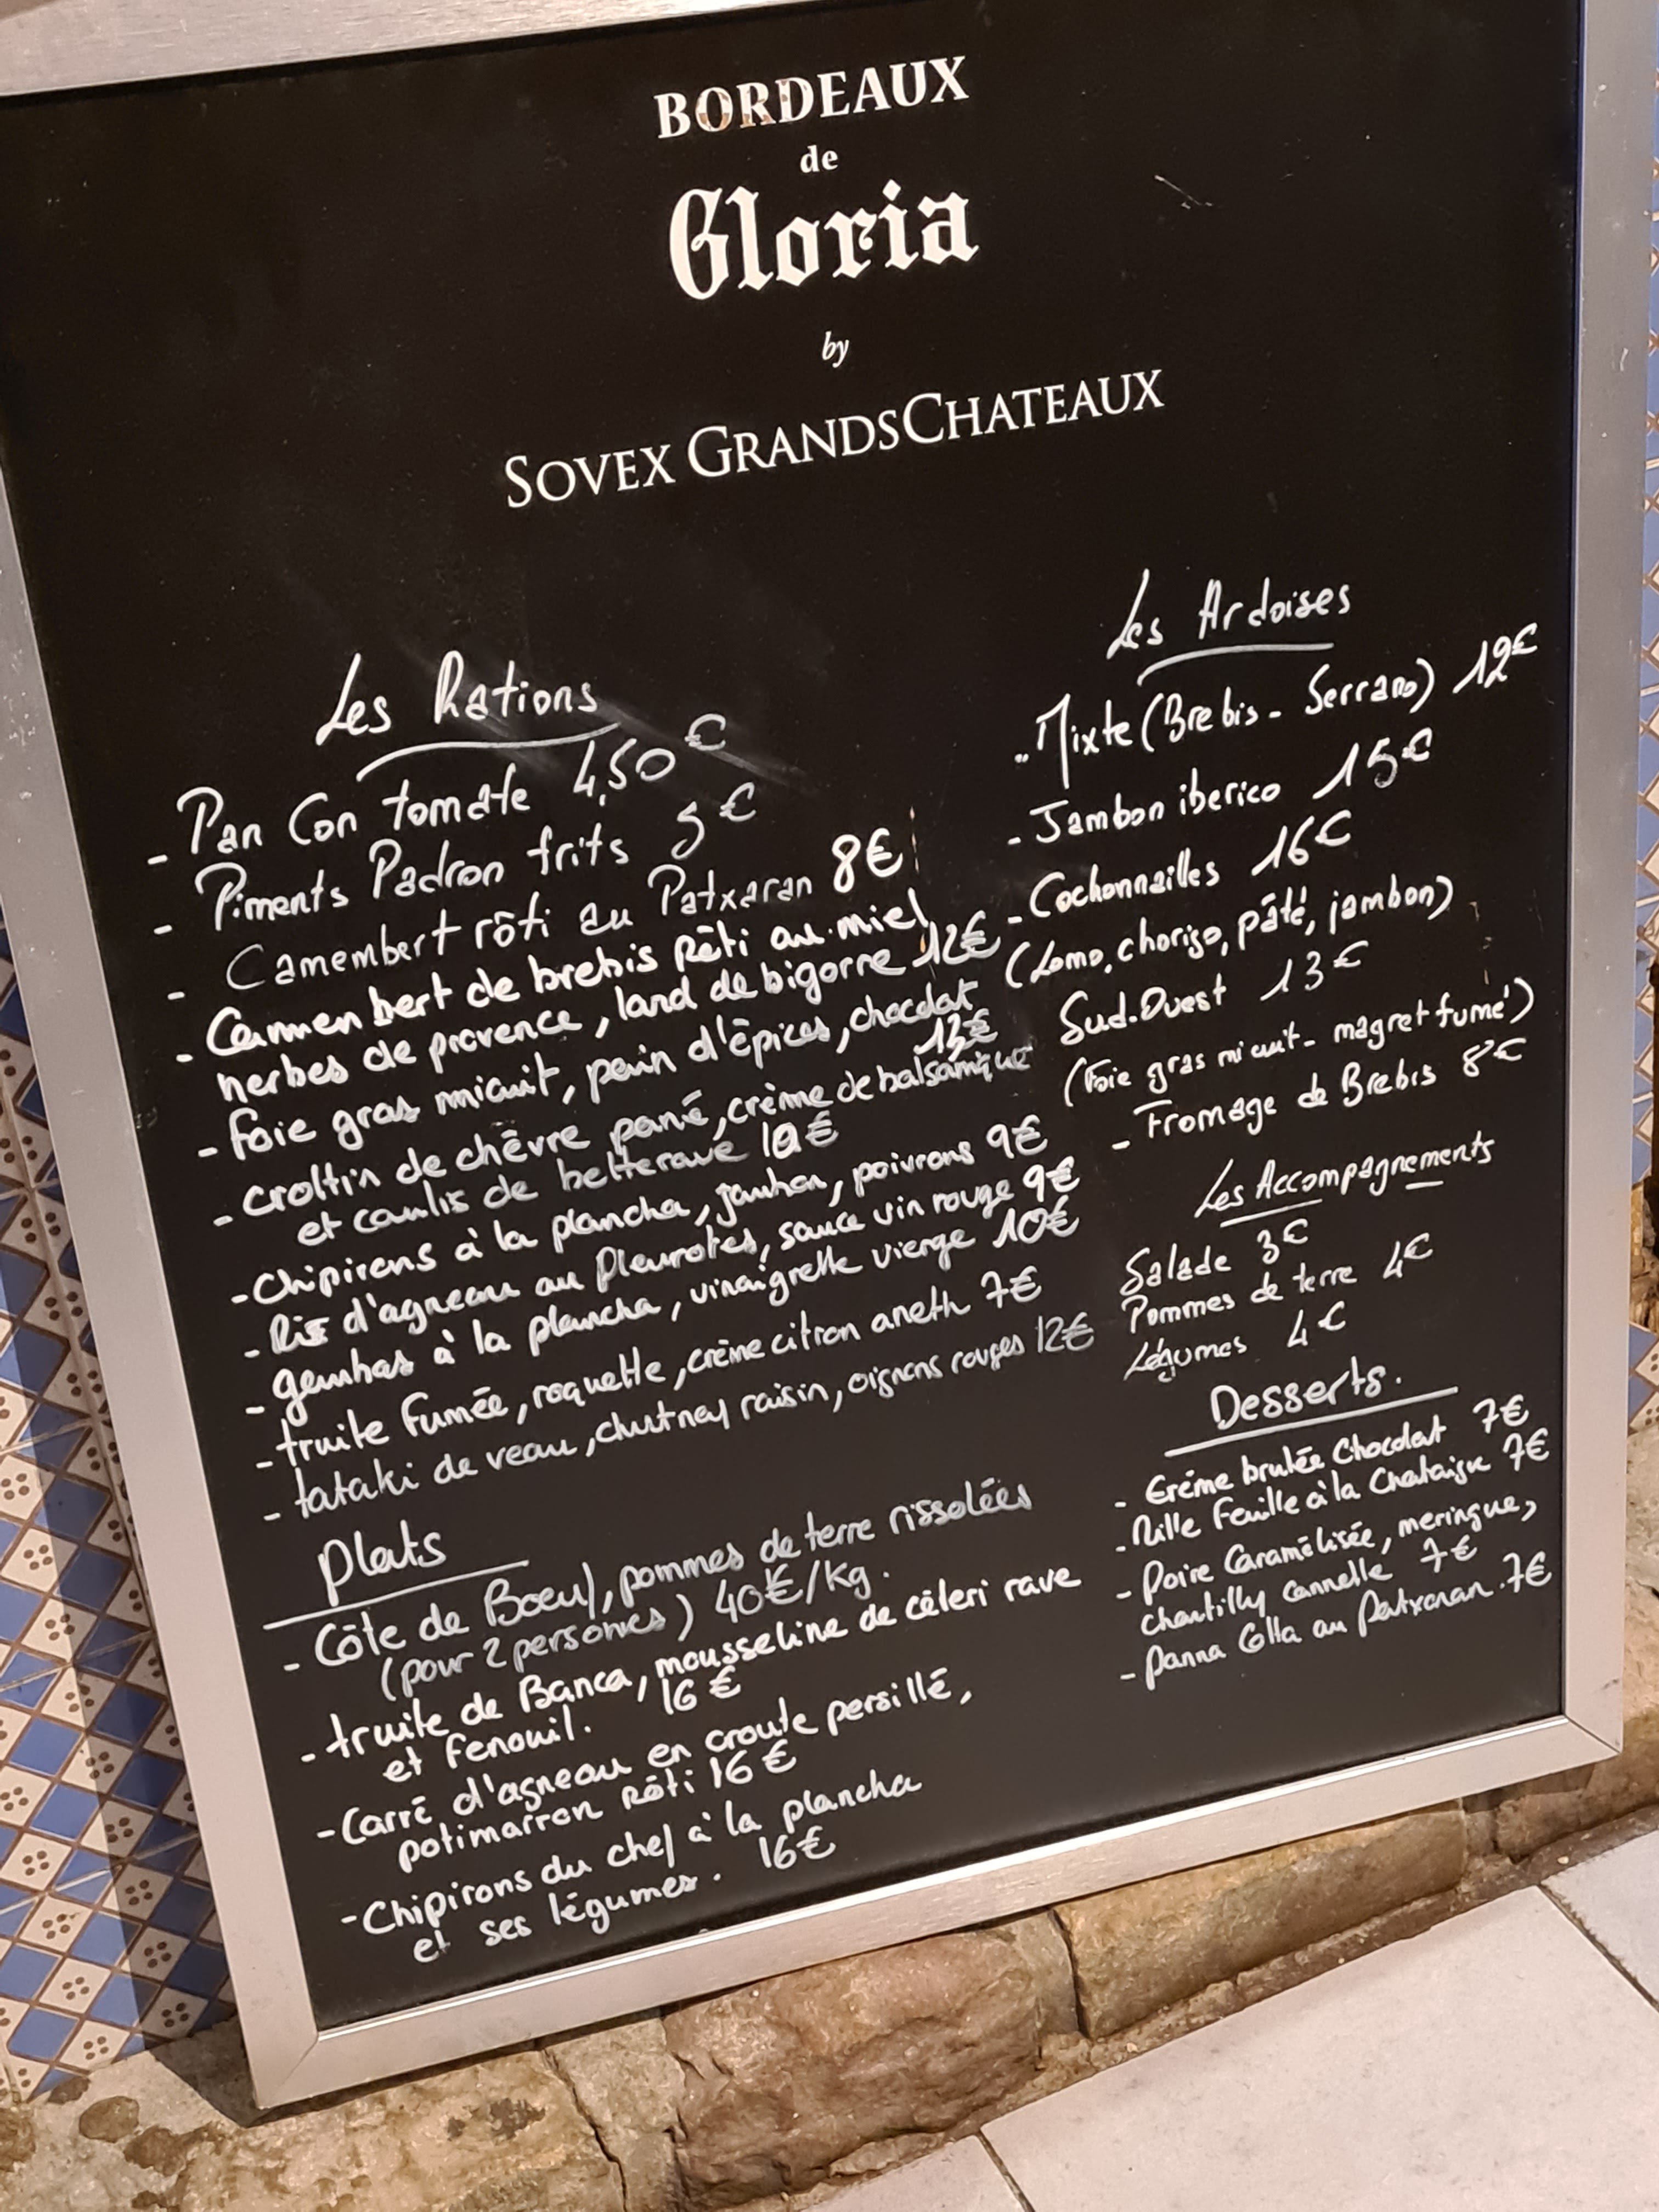 BORDEAUX
de
Gloria
by
SOVEX GRANDSCHATEAUX
Les Rations
- Pan Con tomate 4,50€
- Piments Padron frits 5€
- Camembert rôti au Patxaran 8€
- Camembert de brebis rôti au miel
herbes de provence, lard de bigorre 12€
- foie gras micuit, pain d'épices, chocolat
13€
- crottin de chèvre pané, crème de balsamique
et coulis de betterave 10€
- Chipirons à la plancha, jambon, poivrons 9€
- Ris d'agneau au Pleurotes, sauce vin rouge 9€
- gambas à la plancha, vinaigrette vierge 10€
- truite fumée, roquette, crème citron aneth 7€
- tataki de veau, chutney raisin, oignons rouges 12€
Plats
- Côte de Boeuf, pommes de terre rissolées
(pour 2 personnes) 40€/kg.
- truite de Banca, mousseline de céleri rave
et fenouil. 16€
- Carré d'agneau en croute persillé,
potimarron rôti 16€
- Chipirons du chef à la plancha
et ses légumes. 16€
Les Ardoises
- Mixte (Brebis - Serrano) 12€
- Jambon iberico 15€
- Cochonnailles 16€
(Lomo, chorizo, pâté, jambon)
Sud-Ouest 13€
(Foie gras mi cuit - magret fumé)
- Fromage de Brebis 8€
Les Accompagnements
Salade 3€
Pommes de terre 4€
Légumes 4€
Desserts.
- Crème brulée Chocolat 7€
- Mille Feuille à la Chataigne 7€
- Poire Caramélisée, meringue,
chantilly cannelle 7€
- Panna Cotta au Patxaran. 7€